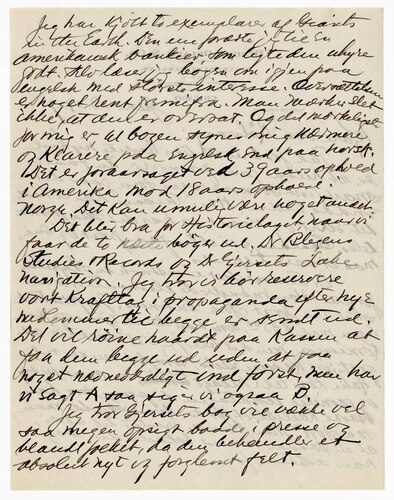 Jeg har kjøbt to exemplarer af Giants
in the Earth. Den ene forærte jeg til en
amerikansk bankier, som ligte den uhyre
godt. Selv læser jeg bogen om igjen paa
engelsk med største interesse. Oversættelsen
er noget rent fænomenalt. Man mærker slet
ikke at den er oversat. Og det mærkeligste
for mig er at bogen synes mig nærmere
og klarere paa Engelsk end paa norsk.
Det er foraarsaget ved 39 aars ophold
i Amerika mod 18 aars ophold i
Norge. Det kan umulig være noget andet.
Det blir bra for Historielaget, naar vi
faar de to bøger ud, Dr Blegens
Studies & Records og Dr Gjersets Lake
navigation. Jeg tror vi bør reservere
vort krafttag i propaganda efter nye
medlemmer til begge er sendt ud.
Det vil røine haardt paa Kassen at
faa dem begge ud uden at faa
noget nævneværdigt ind først, men har
vi sagt A saa siger vi ogsaa B.
Jeg tror Gjersets bog vil vække vel
saa megen opsigt baade i presse og
blandt folket, da den behandler et
absolut nyt og forglemt felt.